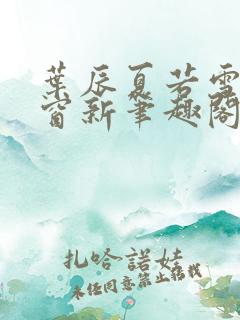 葉辰夏若雪
窗新筆趣閣
扎哈諾娃
未經同意禁止轉載